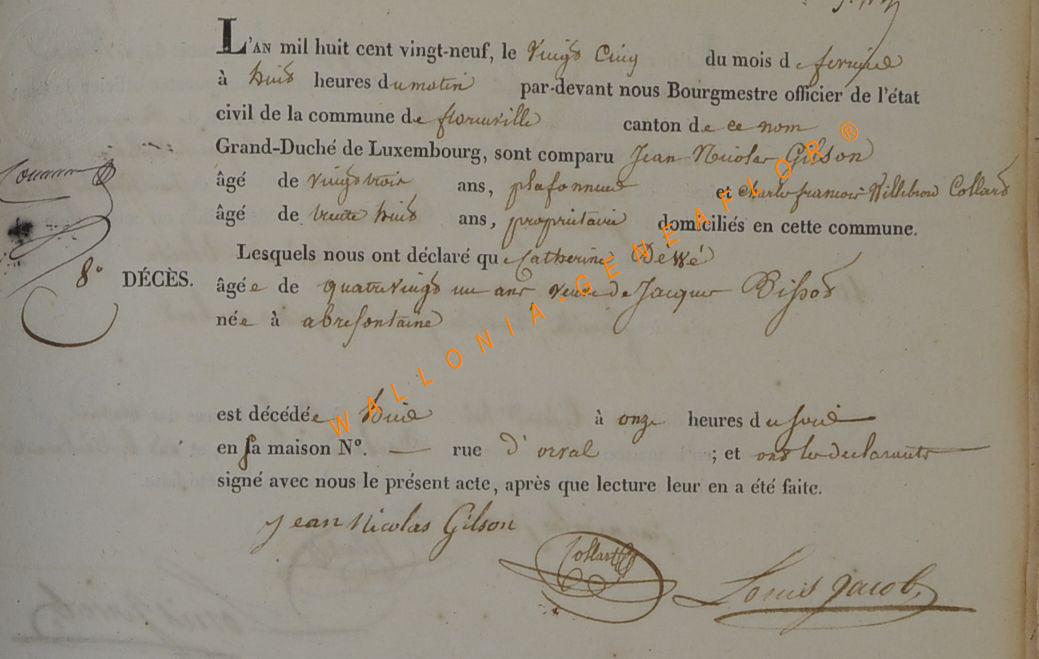 L'AN mil huit cent vingt-neuf, le vingt cinq du mois de fevrier
à huit heures du matin par-devant nous Bourgmestre officier de l'état
civil de la commune de florenville canton de ce nom
Grand-Duché de Luxembourg, sont comparu Jean-Nicolas Gilson
âgé de vingt trois ans, plafonneur et charle francois Willebrow Collard
âgé de trente huit ans, proprietaire domiciliés en cette commune.
Lesquels nous ont déclaré que Catherine
8e DÉCÈS.
âgée de quatre vingt un ans veuve de Jacques
née à
est décédée hier à onze heures du soir
en sa maison N°. — rue d'orval ; et ont les declarants
signé avec nous le présent acte, après que lecture leur en a été faite.
Jean Nicolas Gilson
Collard
Louis Jacob
WALLONIA-GENEAFLOR®